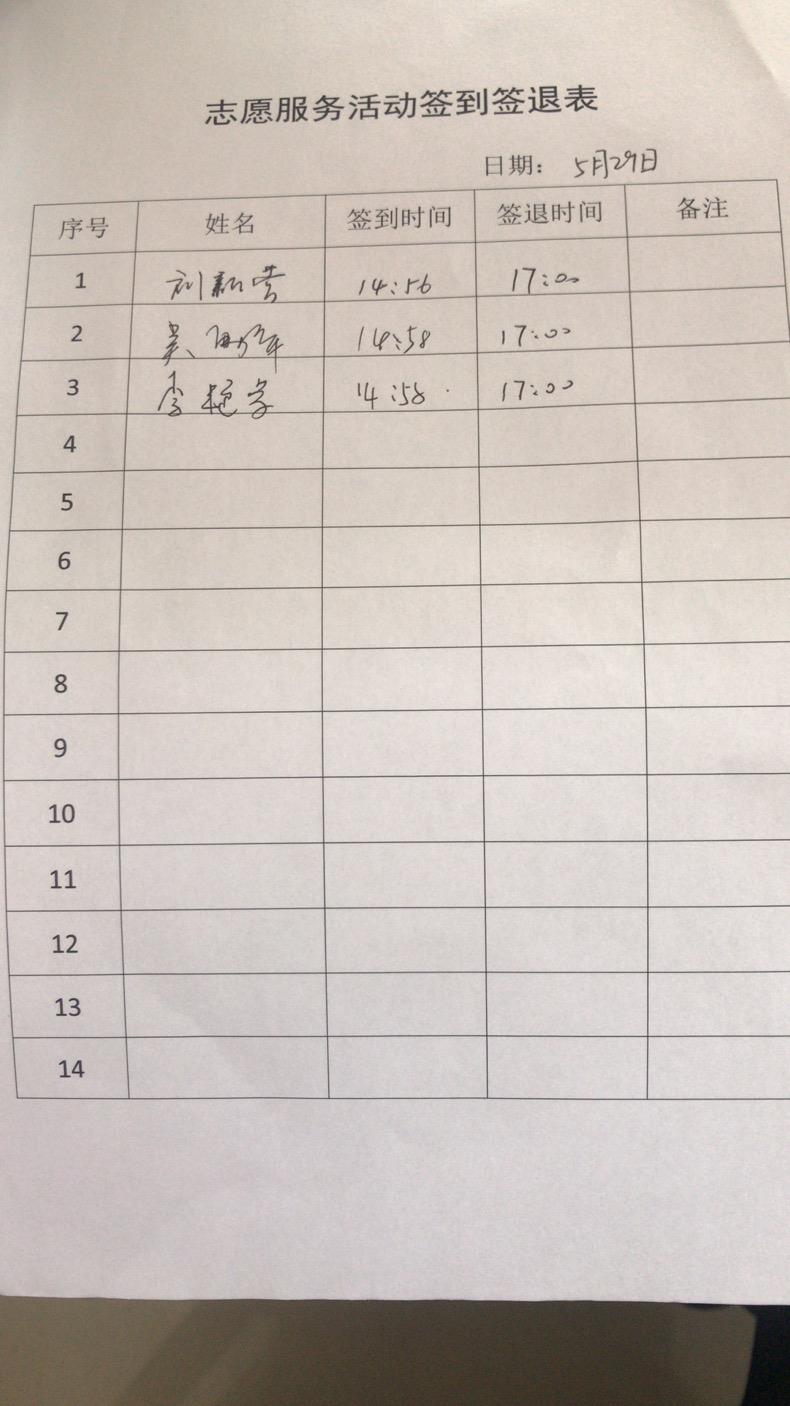 志愿服务活动签到签退表
日期： 5月29日
序号 姓名 签到时间 签退时间 备注
1 刘新营 14:56 17:00
2 吴 14:58 17:00
3 李艳 14:58 17:00
4
5
6
7
8
9
10
11
12
13
14